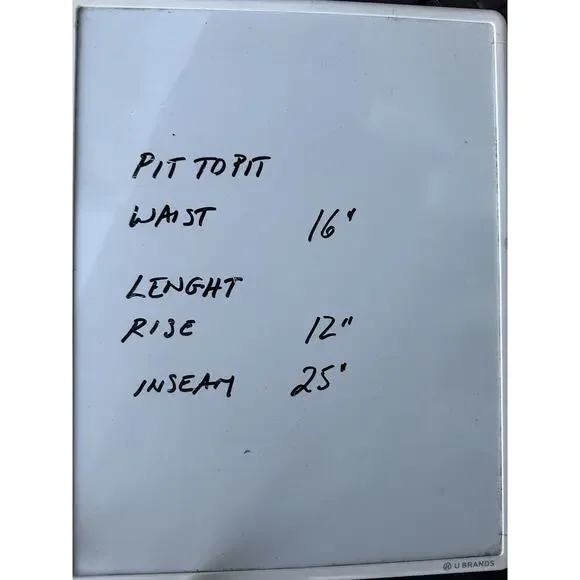 PIT TO PIT
WAIST 16"
LENGHT
RISE 12"
INSEAM 25"
U BRANDS